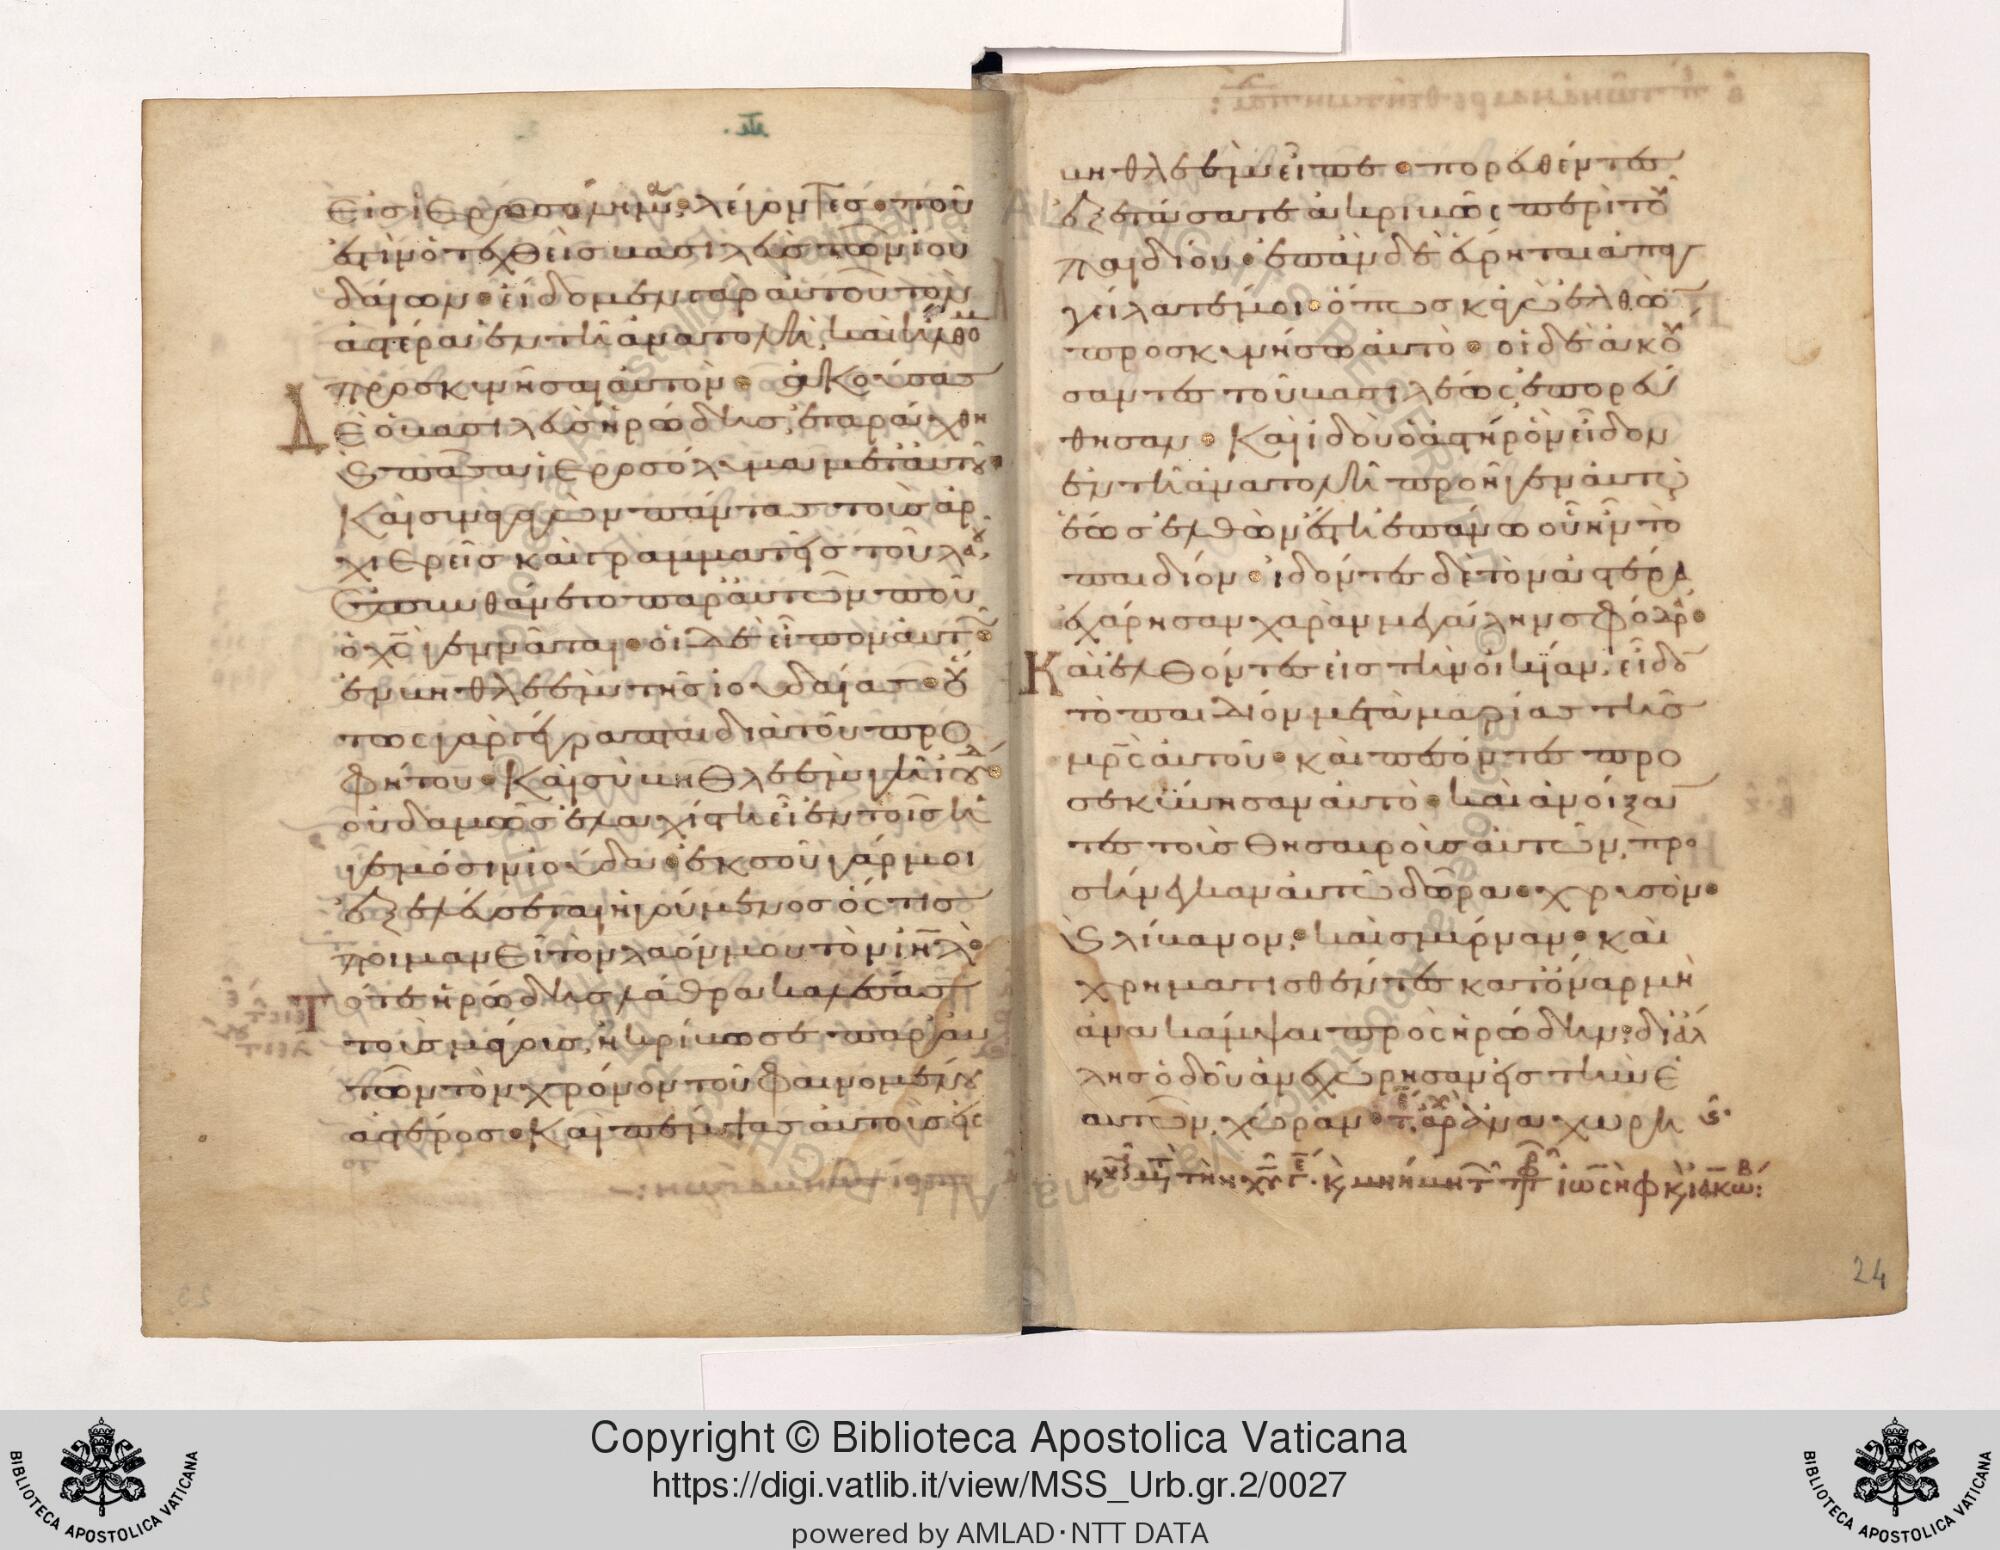 εἰς ἱεροσόλυμα, λέγοντες· ποῦ
ἐστὶν ὁ τεχθεὶς βασιλεὺς τῶν ἰου
δαίων· εἴδομεν γὰρ αὐτοῦ τὸν
ἀστέρα ἐν τῆ ἀνατολῆ, καὶ ἤλθο
προσκυνῆσαι αὐτόν· ἀκούσας
Δὲ ὁ βασιλεὺς ἡρώδης, ἐταράχθη
καὶ πᾶσα ἱεροσόλυμα μετ' αὐτοῦ·
Καὶ συναγαγὼν πάντας τοὺς ἀρ
χιερεῖς καὶ γραμματεῖς τοῦ λαοῦ,
ἐπυνθάνετο παρ' αὐτῶν ποῦ
ὁ χς γεννᾶται· οἱ δὲ εἶπον αὐτῶ·
ἐν βηθλεὲμ τῆς ἰουδαίας· οὕ
τως γὰρ γέγραπται διὰ τοῦ προ
φήτου· Καὶ σὺ βηθλεὲμ γῆ ἰούδα·
οὐδαμῶς ἐλαχίστη εἶ ἐν τοῖς ἡ
γεμόσιν ἰούδα· ἐκ σοῦ γάρ μοι
ἐξελεύσεται ἡγούμενος ὅστις
ποιμανεῖ τὸν λαόν μου τὸν ιηλ·
Τότε ἡρώδης λάθρα καλέσας
τοὺς μάγους, ἠκρίβωσε παρ' αὐ
τῶν τὸν χρόνον τοῦ φαινομένου
ἀστέρος· Καὶ πέμψας αὐτοὺς εἰς
βηθλεὲμ εἶπε· πορευθέντες
ἐξετάσατε ἀκριβῶς περὶ τοῦ
παιδίου· ἐπὰν δὲ εὕρητε ἀπαγ
γείλατέ μοι· ὅπως κἀγὼ ἐλθὼν
προσκυνήσω αὐτό· οἱ δὲ ἀκού
σαντες τοῦ βασιλέως, ἐπορεύ
θησαν· Καὶ ἰδοὺ ὁ ἀστὴρ ὃν εἶδον
ἐν τῆ ἀνατολῆ προῆγεν αὐτοὺς
ἕως ἐλθὼν ἔστη ἐπάνω οὗ ἦν τὸ
παιδίον· ἰδόντες δὲ τὸν ἀστέρα
ἐχάρησαν χαρὰν μεγάλην σφόδρα·
Καὶ ἐλθόντες εἰς τὴν οἰκίαν, εἶδον
τὸ παιδίον μετὰ μαρίας τῆς
μρς αὐτοῦ· καὶ πεσόντες προ
σεκύνησαν αὐτό· καὶ ἀνοίξαν
τες τοὺς θησαυροὺς αὐτῶν, προ
σήνεγκαν αὐτῶ δῶρα· χρυσὸν·
καὶ λίβανον, καὶ σμύρναν· καὶ
χρηματισθέντες κατ' ὄναρ μὴ
ἀνακάμψαι πρὸς ἡρώδην, δι' ἄλ
λης ὁδοῦ ἀνεχώρησαν εἰς τὴν ἑ
αυτῶν χώραν· τέ ἀρχὴ ἀναχωρη
24
Copyright © Biblioteca Apostolica Vaticana
https://digi.vatlib.it/view/MSS_Urb.gr.2/0027
powered by AMLAD·NTT DATA
BIBLIOTECA APOSTOLICA VATICANA
BIBLIOTECA APOSTOLICA VATICANA